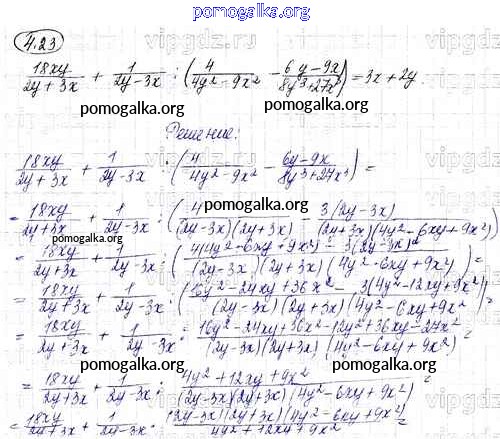 pomogalka.org
4.23
18xy/(2y + 3x) + 1/(2y - 3x) : (4/(4y² - 9x²) - (6y - 9x)/(8y³ + 27x³)) = 3x + 2y.
pomogalka.org pomogalka.org
Решение:
18xy/(2y + 3x) + 1/(2y - 3x) : (4/(4y² - 9x²) - (6y - 9x)/(8y³ + 27x³)) =
pomogalka.org
= 18xy/(2y + 3x) + 1/(2y - 3x) : (4/((2y - 3x)(2y + 3x)) - 3(2y - 3x)/((2y + 3x)(4y² - 6xy + 9x²))
pomogalka.org
= 18xy/(2y + 3x) + 1/(2y - 3x) : (4(4y² - 6xy + 9x²) - 3(2y - 3x)²/((2y - 3x)(2y + 3x)(4y² - 6xy + 9x²)) =
= 18xy/(2y + 3x) + 1/(2y - 3x) : (16y² - 24xy + 36x² - 3(4y² - 12xy + 9x²)/((2y - 3x)(2y + 3x)(4y² - 6xy + 9x²)) =
= 18xy/(2y + 3x) + 1/(2y - 3x) : (16y² - 24xy + 36x² - 12y² + 36xy - 27x²)/((2y - 3x)(2y + 3x)(4y² - 6xy + 9x²)) =
pomogalka.org pomogalka.org
= 18xy/(2y + 3x) + 1/(2y - 3x) : (4y² + 12xy + 9x²)/((2y - 3x)(2y + 3x)(4y² - 6xy + 9x²)) =
= 18xy/(2y + 3x) + 1/(2y - 3x) · (2y - 3x)(2y + 3x)(4y² - 6xy + 9x²)/(4y² + 12xy + 9x²) =
pomogalka.org
vipgdz.ru